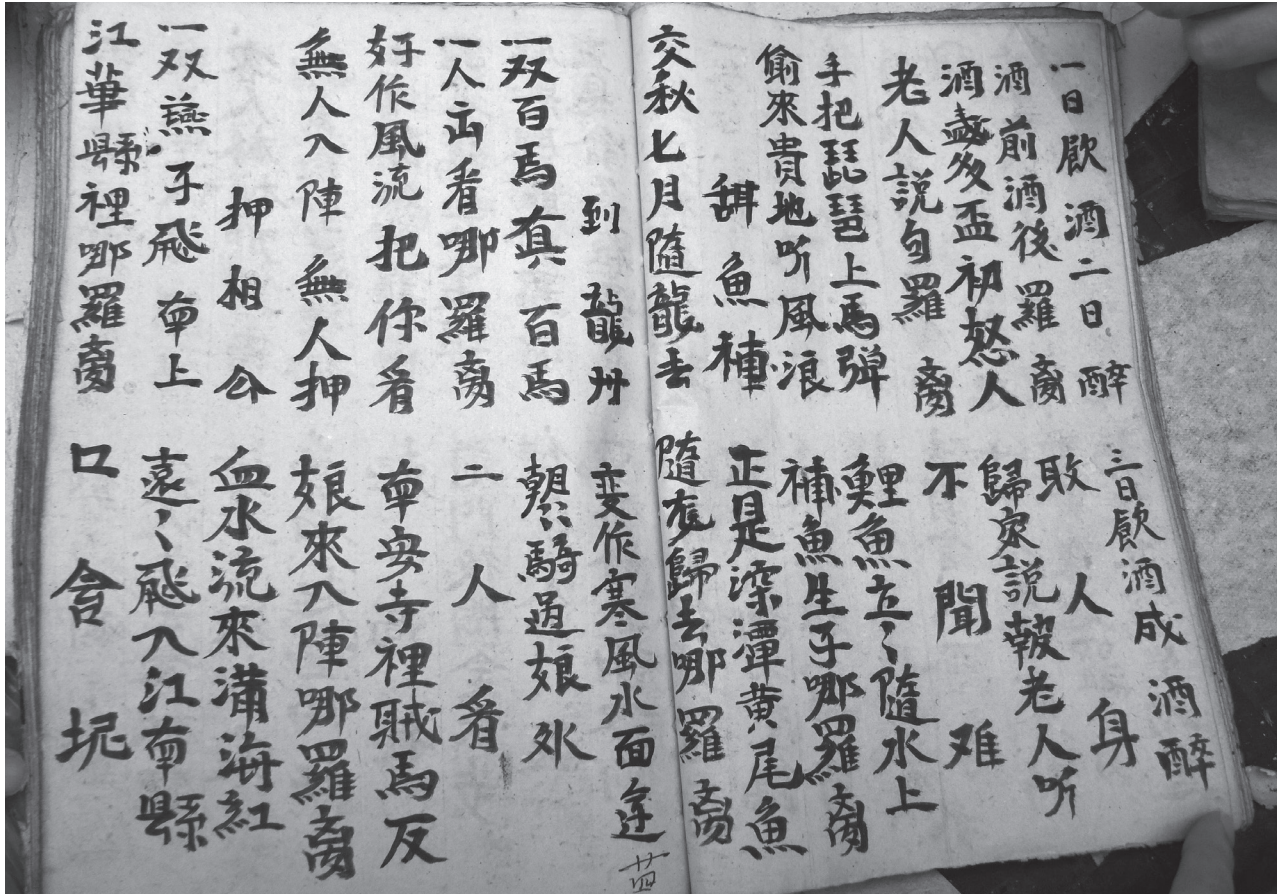 一日飲酒二日醉
三日飲酒成酒醉
酒前酒後羅离
敗人身
酒盞多盃初怒人
歸家説報老人听
老人説自羅离
不聞难
手把琵琶上馬弹
鯉魚立〻隨水上
偷來貴地听風浪
補魚生子哪羅离
魚種
正是深潭黄尾魚
交秋七月隨龍去
隨龍歸去哪羅离
到龍州
变作寒風水面
廿四
一双百馬真百馬
朝〻騎過娘外
一人出看哪羅离
二人看
好作風流把你看
南安寺裡賊馬反
無人入陣無人押
娘來入陣哪羅离
押相公
血水流來满海紅
一双燕子飛南上
遠〻飛入江南縣
江華縣裡哪羅离
口舍坭